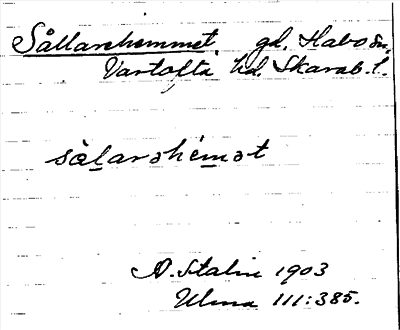 Sållarehemmet, gd. Habo sn,
Vartofta hd. Skarab. l.
sålarəhemət
A. Stalin 1903
Ulma 111:385.